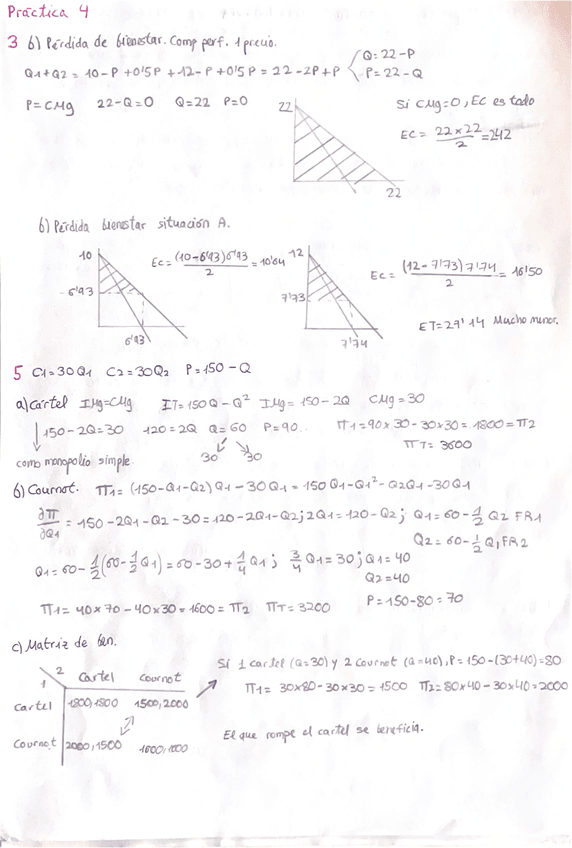 Práctica 4
3 b) Pérdida de bienestar. Comp perf. 1 precio.
Q1+Q2 = 10-P+0'5P+12-P+0'5P = 22-2P+P
Q=22-P
P=22-Q
P=CMg 22-Q=0 Q=22 P=0
22
22
Si CMg=0, EC es todo
EC = 22x22/2 = 242
b) Pérdida bienestar situación A.
10
6'93
6'93
EC = (10-6'93)6'93/2 = 10'64
12
7'73
7'74
EC = (12-7'73)7'74/2 = 16'50
ET=27'14 Mucho menor.
5 C1=30Q1 C2=30Q2 P=150-Q
a) Cártel IMg=CMg IT=150Q-Q² IMg=150-2Q CMg=30
150-2Q=30 120=2Q Q=60 P=90.. π1=90x30-30x30=1800=π2
30 30 πT=3600
como monopolio simple
b) Cournot. π1=(150-Q1-Q2)Q1-30Q1=150Q1-Q1²-Q2Q1-30Q1
∂π/∂Q1 = 150-2Q1-Q2-30=120-2Q1-Q2; 2Q1=120-Q2; Q1=60-1/2 Q2 FR1
Q2=60-1/2 Q1 FR2
Q1=60-1/2(60-1/2Q1)=60-30+1/4Q1; 3/4Q1=30; Q1=40
Q2=40
π1=40x70-40x30=1600=π2 πT=3200 P=150-80=70
c) Matriz de ben.
1 2 Cartel Cournot
Cartel 1800,1800 1500,2000
Cournot 2000,1500 1600,1600
Si 1 cartel (Q=30) y 2 Cournot (Q=40), P=150-(30+40)=80
π1= 30x80-30x30=1500 π2=80x40-30x40=2000
El que rompe el cartel se beneficia.